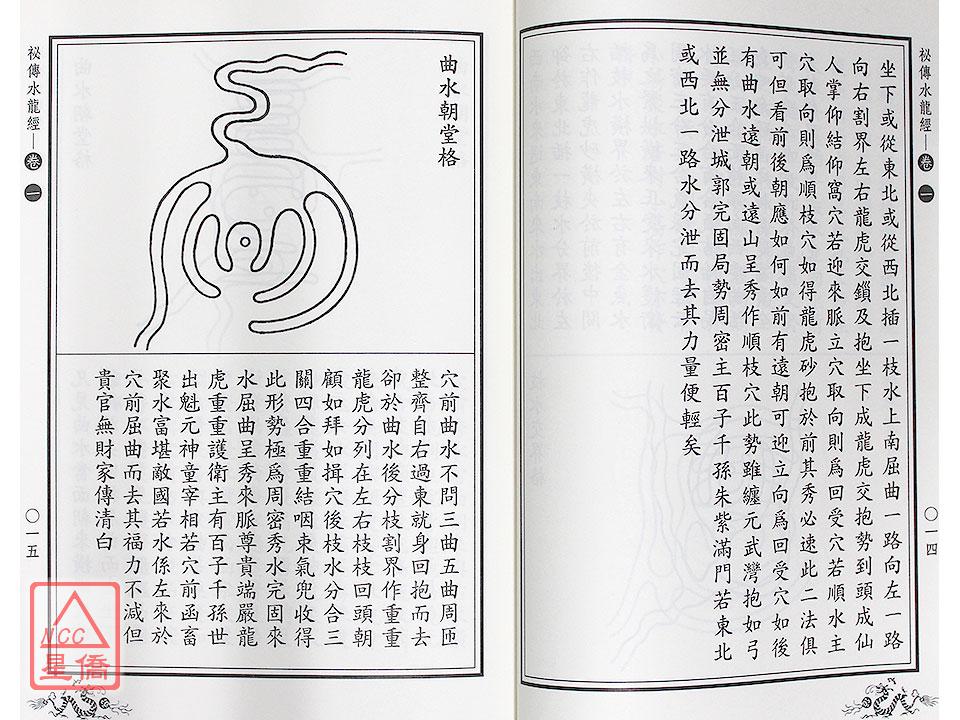 祕傳水龍經
卷一
坐下或從東北或從西北插一枝水上南屈曲一路向左一路
向右割界左右龍虎交鎖及抱坐下成龍虎交抱勢到頭成仙
人掌仰結仰窩穴若迎來脈立穴取向則爲回受穴若順水主
穴取向則爲順枝穴如得龍虎砂抱於前其秀必速此二法俱
可但看前後朝應如何如前有遠朝可迎立向爲回受穴如後
有曲水遠朝或遠山呈秀作順枝穴此勢雖纏元武灣抱如弓
並無分泄城郭完固局勢周密主百子千孫朱紫滿門若東北
或西北一路水分泄而去其力量便輕矣
〇一四
曲水朝堂格
穴前曲水不問三曲五曲周匝
整齊自右過東就身回抱而去
卻於曲水後分枝割界作重重
龍虎分列在左右枝枝回頭朝
顧如拜如揖穴後枝水分合三
關四合重重結咽束氣兜收得
此形勢極爲周密秀水完固來
水屈曲呈秀來脈尊貴端嚴龍
虎重重護衛主有百子千孫世
出魁元神童宰相若穴前函畜
聚水富堪敵國若水係左來於
穴前屈曲而去其福力不減但
貴官無財家傳清白
祕傳水龍經
卷一
〇一五
NCC
星僑